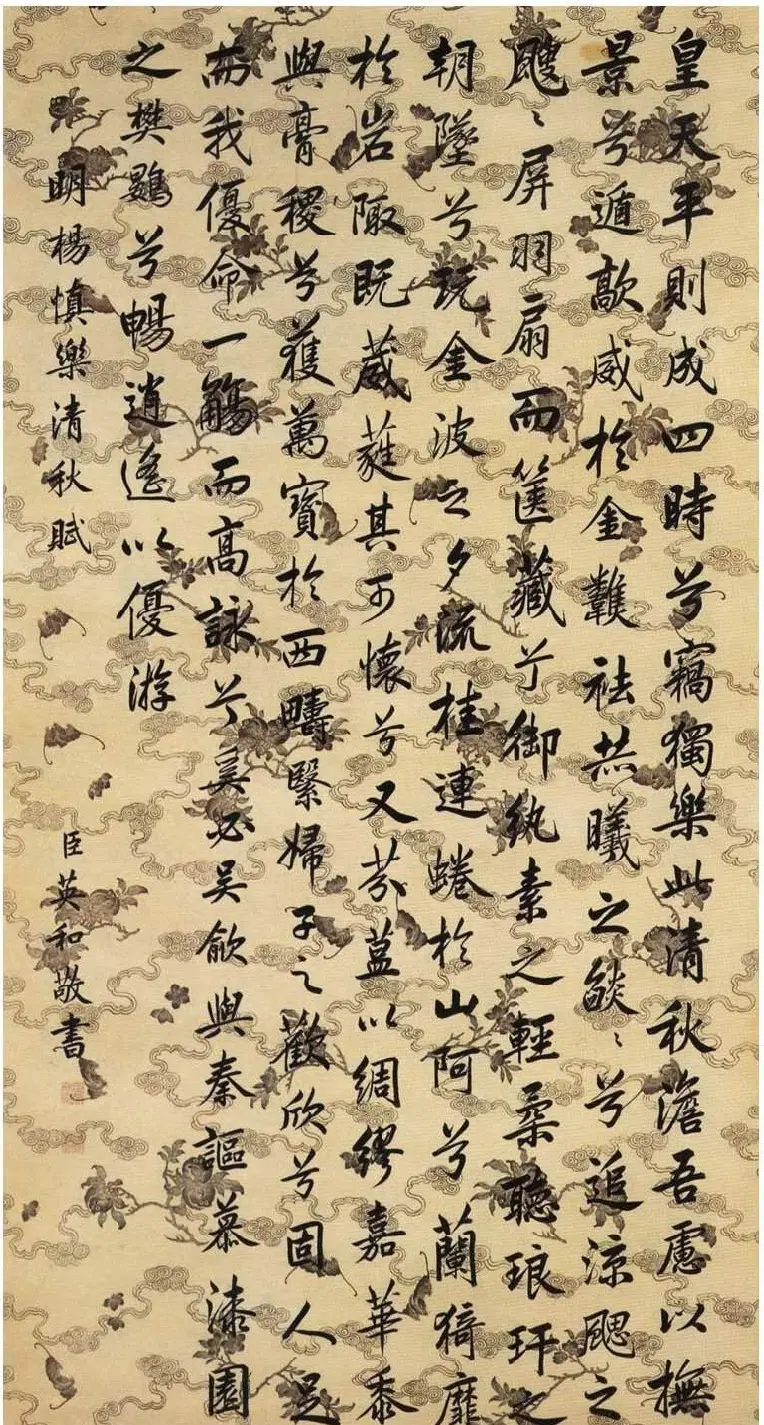 皇天平則成四時兮竊獨樂此清秋澹吾慮以撫
景兮遁歊威於金祛曦之燄〻兮追涼颸之
颼〻屏羽扇而篋藏兮御紈素之輕柔聽琅玕之
朝墜兮玩金波之夕流桂連蜷於山阿兮蘭猗靡
於岩陬既葳蕤其可懷兮又芬以綢繆嘉華黍
與膏稷兮獲萬寶於西疇緊婦子之歡欣兮固人足
而我優命一觴而高詠兮奚必吳歈與秦謳慕漆園
之樊鷃兮暢逍遙以優游
明楊慎樂清秋賦
臣英和敬書